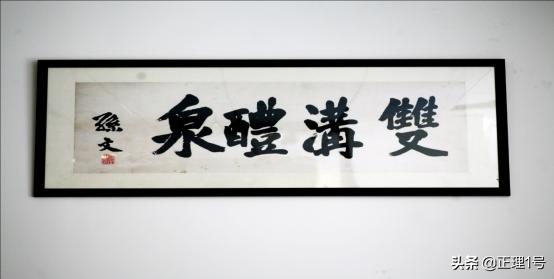 雙溝醴泉
孫文
头条 @正理1号